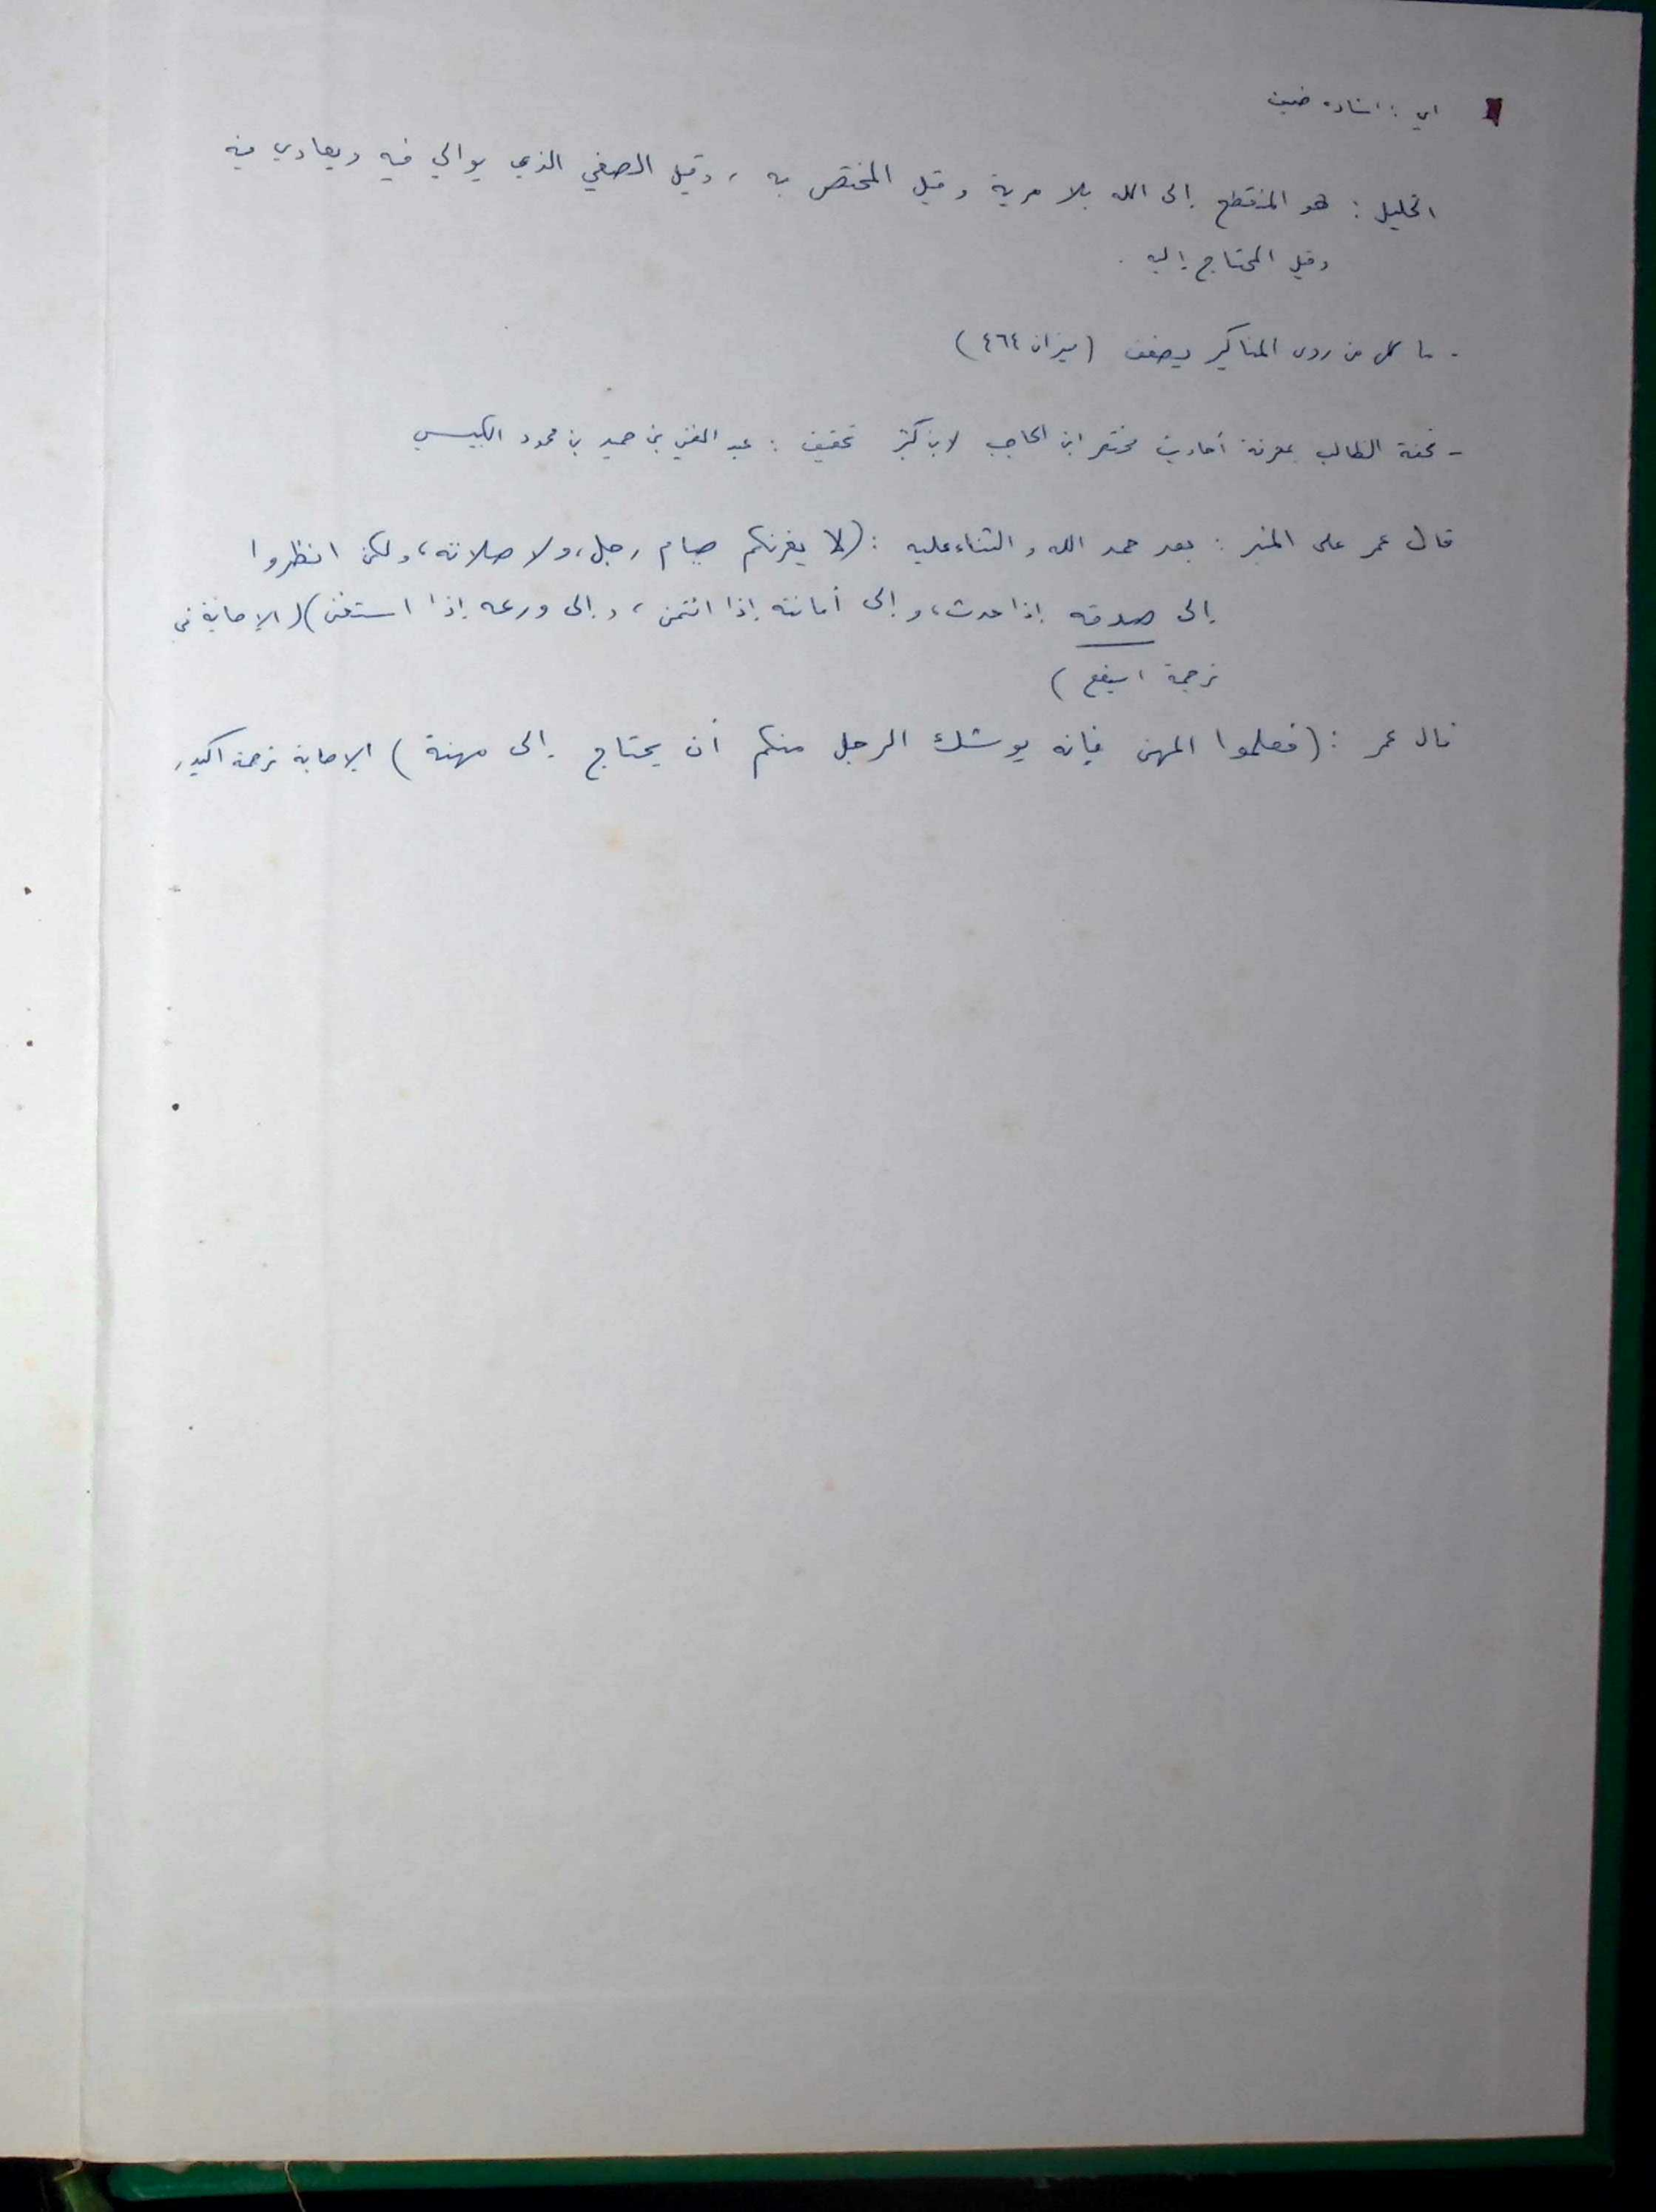 اي : اسناده ضعيف
الخليل : هو المنقطع إلى الله بلا مرية وقيل المختص به ، وقيل الصفي الذي يوالي فيه ويعادي فيه
وقيل المحتاج إليه .
- ما كل من روى المناكير يضعف (ميزان ٤٦٤)
- تحفة الطالب بمعرفة أحاديث مختصر ابن الحاجب لابن كثير تحقيق : عبد الغني بن حميد بن محمود الكبيسي
قال عمر على المنبر : بعد حمد الله والثناء عليه : (لا يغرنكم صيام رجل، ولا صلاته، ولكن انظروا
إلى صدقه إذا حدث، وإلى أمانته إذا ائتمن ، وإلى ورعه إذا استغنى) (الإصابة في
ترجمة اسيفع )
قال عمر : (فعلموا المهن فإنه يوشك الرجل منكم أن يحتاج إلى مهنة ) الإصابة ترجمة اكيدر